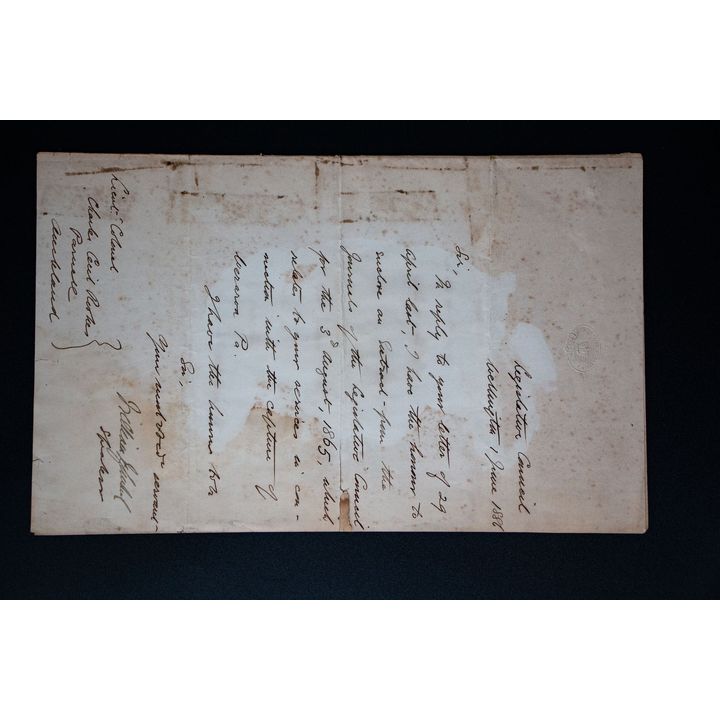 Legislative Council
Wellington 1 June 1886
Sir,
In reply to your letter of 29
April last, I have the honour to
enclose an Extract from the
Journals of the Legislative Council
for the 3d August, 1865, which
relates to your services in con-
nection with the capture of
Weraroa Pa.
I have the honour to be
Sir,
Your most obedt servant
Speaker
Lieut Colonel
Charles Cecil Rookes
Parnell
Auckland